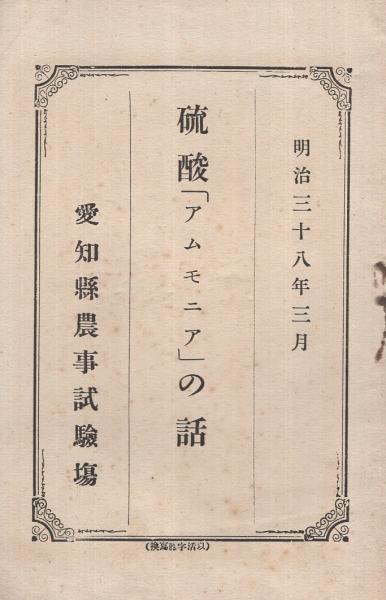 明治三十八年三月
硫酸「アムモニア」の話
愛知縣農事試驗塲
(以活字謄寫換)